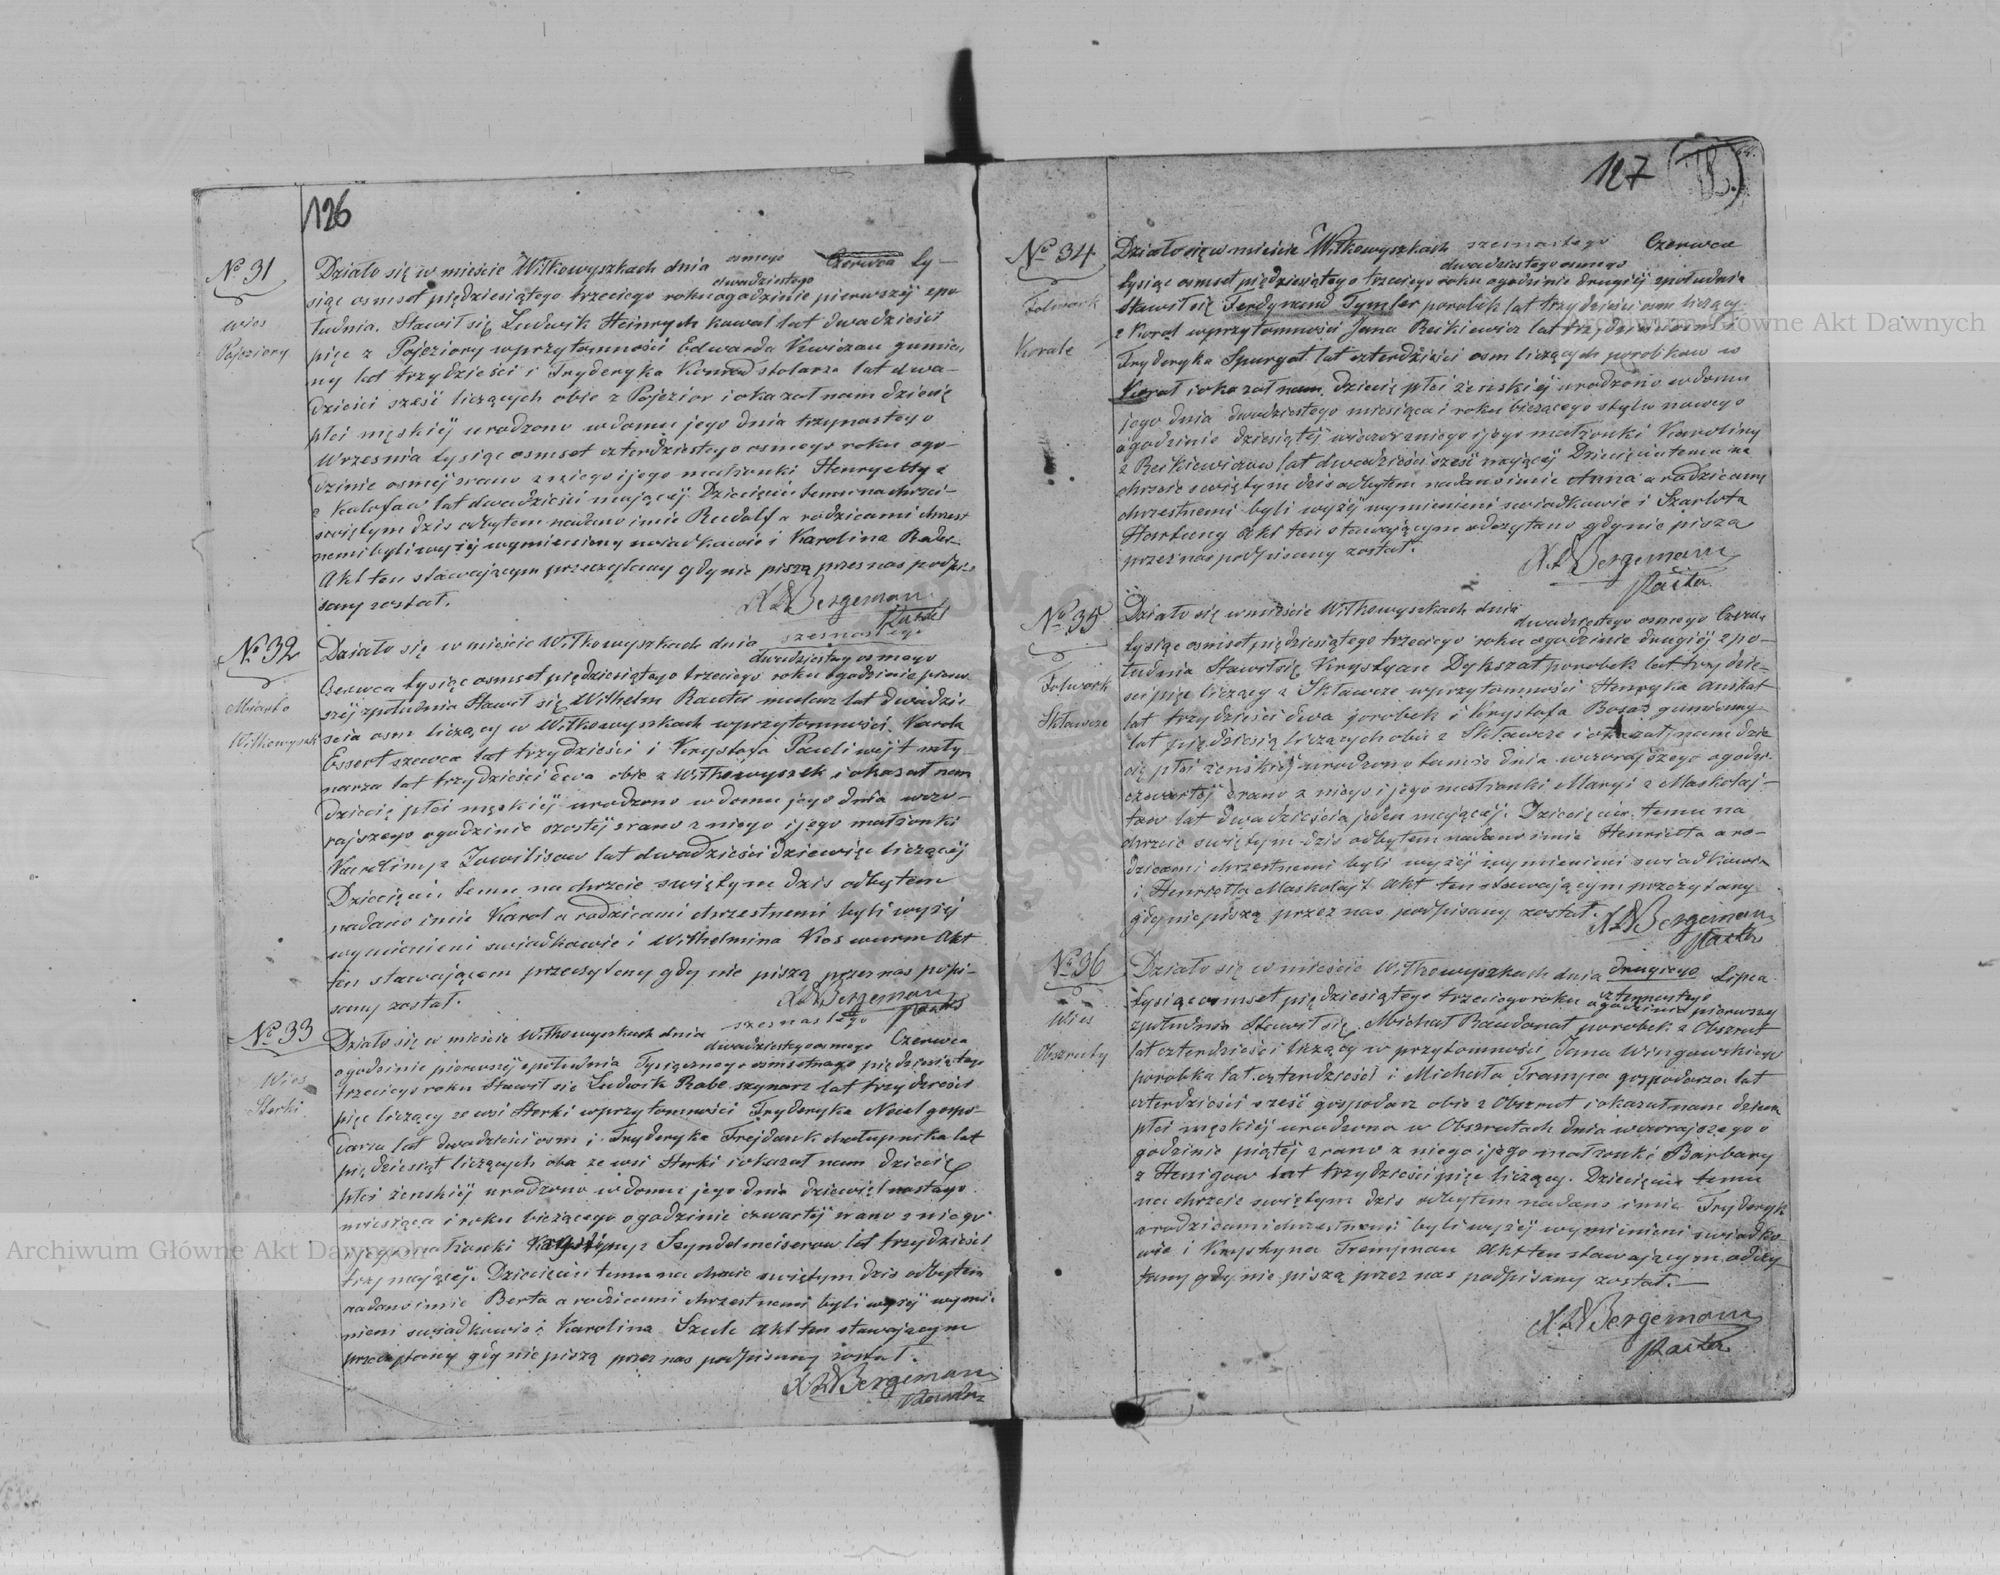 126
No 31
wies
Pojeziory
Działo się w mieście Wiłkowyszkach dnia osmego Czerwca ty-
dwudziestego
siąc osmset pięćdziesiątego trzeciego roku o godzinie pierwszéj z po
łudnia. Stawił się Ludwik Heinrych kowal lat dwadzieścia
pięc z Pojeziory w przytomności Edwarda Kwiczau gumien
ny lat trzydzieści i Fryderyka Konrad stolarza lat dwa-
dzieści sześć liczących obie z Pojezior i okazał nam dziecię
płci męskiéj urodzone w domu jego dnia trzynastego
Wrzesnia tysiąc osmset czterdziestego osmego roku ogo-
dzinie osmej zrano z niego i jego małżonki Henryetty z
lat dwadzieścia mającéj Dziecięciu temu na chrzcie
swiętym dzis odbytem nadano imie Rudolf a rodzicami chrzest
nemi byli wyżéj wymienieny swiadkowie i Karolina Rader.
Akt ten stawającym przeczytany gdy nie piszą przez nas podpi-
sany został.
Bergeman
Pastor
No 32
Miasto
Wiłkowyszk
Działo się w mieście Wiłkowyszkach dnia szesnastego
dwudziestego osmego
Czerwca tysiąc osmset pięćdziesiątego trzeciego roku ogodzinie pierw
széj zpołudnia Stawił się Wilhelm Rauter malarz lat dwadzie
scia osm liczący w Wiłkowyszkach w przytomności Karola
Essert szewca lat trzydzieści i Krysztofa Pauliwejt mły-
narza lat trzydzieści dwa obie z Wiłkowyszek i okazał nam
dziecię płci męskiéj urodzone w domu jego dnia wczo-
rajszego ogodzinie szostéj zrano z niego i jego małżonki
Karoliny z lat dwadzieścia dziewięć liczącéj
Dziecięciu temu na chrzcie swiętym dzis odbytem
nadano imie Karol a rodzicami chrzestnemi byli wyżéj
wymienieni swiadkowie i Wilhelmina Koswurm Akt
ten stawającem przeczytany gdy nie piszą przez nas podpi-
sany został.
Bergeman
Pastor
No 33
Wies
Sterki
Działo się w mieście Wiłkowyszkach dnia szesnastego Czerwca
dwudziestego osmego
ogodzinie pierwszéj zpołudnia Tysiącznego osmsetnego pięćdziesiątego
trzeciego roku Stawił się Ludwik Rabe szynarz lat trzydzieści
pięc liczący ze wsi Sterki w przytomności Fryderyka Neiel gospo-
darza lat dwadzieścia osm i Fryderyka Frejdank chałupnika lat
pięćdziesiąt liczących oba ze wsi Sterki i okazał nam dziecię
płci żeńskiéj urodzone w domu jego dnia dziewiętnastego
miesiąca i roku bieżącego ogodzinie czwartéj zrano z niego
i jego małżonki z Szyndelmeiserow lat trzydzieści
trzy mającéj. Dziecięciu temu na chrzcie swiętym dzis odbytem
nadano imie Berta a rodzicami chrzestnemi byli wyżéj wymie-
nieni swiadkowie i Karolina Szule Akt ten stawającym
przeczytany gdy nie piszą przez nas podpisany został.
Bergeman
127
No 34
Folwark
Korale
Działo się w mieście Wiłkowyszkach szesnastego Czerwca
dwudziestego osmego
tysiąc osmset pięćdziesiątego trzeciego roku ogodzinie drugiéj zpołudnia
Stawił się Ferdynand Tymler porobek lat trzydzieści osm liczący
z Koral w przytomności Jana Reikiewicz lat trzydzieści osm i
Fryderyka Spurgat lat czterdzieści osm liczących porobkow w
Koral i okazał nam dziecię płci żeńskiéj urodzono w domu
jego dnia dwudziestego miesiąca i roku bieżącego stylu nowego
ogodzinie dziesiątéj wieczor z niego i jego małżonki Karoliny
z Reikiewiczow lat dwadzieścia sześć mającéj Dziecięciu temu na
chrzcie swiętym dzis odbytem nadano imie Anna a rodzicami
chrzestnemi byli wyżéj wymienieni swiadkowie i Szarlota
Hartung Akt ten stawającym odczytano gdy nie piszą
przez nas podpisany został.
Bergeman
Pastor
No 35
Folwark
Skławcze
Działo się w mieście Wiłkowyszkach dnia
dwudziestego osmego Czerw.
tysiąc osmset pięćdziesiątego trzeciego roku ogodzinie drugiéj zpo-
łudnia Stawił się Krystyan Dykszat porobek lat trzydzie-
sci pięc liczący z Skławcze w przytomności Henryka Anikat
lat trzydzieści dwa porobek i Krysztofa gumienny
lat pięćdziesią liczących obu z Skławcze i okazał nam dzie
cię płci żeńskiéj urodzono tamże dnia wczorajszego ogodzi.
czwartéj zrano z niego i jego małżonki Maryi z Maskołaj-
tow lat dwadzieścia jeden mającéj. Dziecięciu temu na
chrzcie swiętym dzis odbytem nadano imie Henrietta a ro-
dzicami chrzestnemi byli wyżéj wymienieni swiadkowie
i Henrietta Maskołajt Akt ten stawającym przeczytany
gdy nie piszą przez nas podpisany został.
Bergeman
Pastor
No 36
Wies
Obszruty
Działo się w mieście Wiłkowyszkach dnia drugiego Lipca
czternastego
tysiąc osmset pięćdziesiątego trzeciego roku ogodzinie pierwszy
zpołudnia Stawił się Michał Raudonat porobek z Obszrut
lat czterdzieści liczący w przytomności Jana Wingowskiego
porobka lat czterdzieści i Michała Trampa gospodarza lat
czterdzieści sześć gospodarz obie z Obszrut i okazał nam dziecie
płci męskiéj urodzono w Obszrutach dnia wczorajszego o
godzinie piątéj zrano z niego i jego małżonki Barbary
z Henigow lat trzydzieści pięc liczący. Dziecięciu temu
na chrzcie swiętym dzis odbytem nadano imie Fryderyk
a rodzicami chrzestnemi byli wyżéj wymienieni swiadko
wie i Krystyna Trempnau Akt ten stawającym odczy
tany gdy nie piszą przez nas podpisany został.
Bergeman
Pastor
Archiwum Główne Akt Dawnych
Archiwum Główne Akt Dawnych